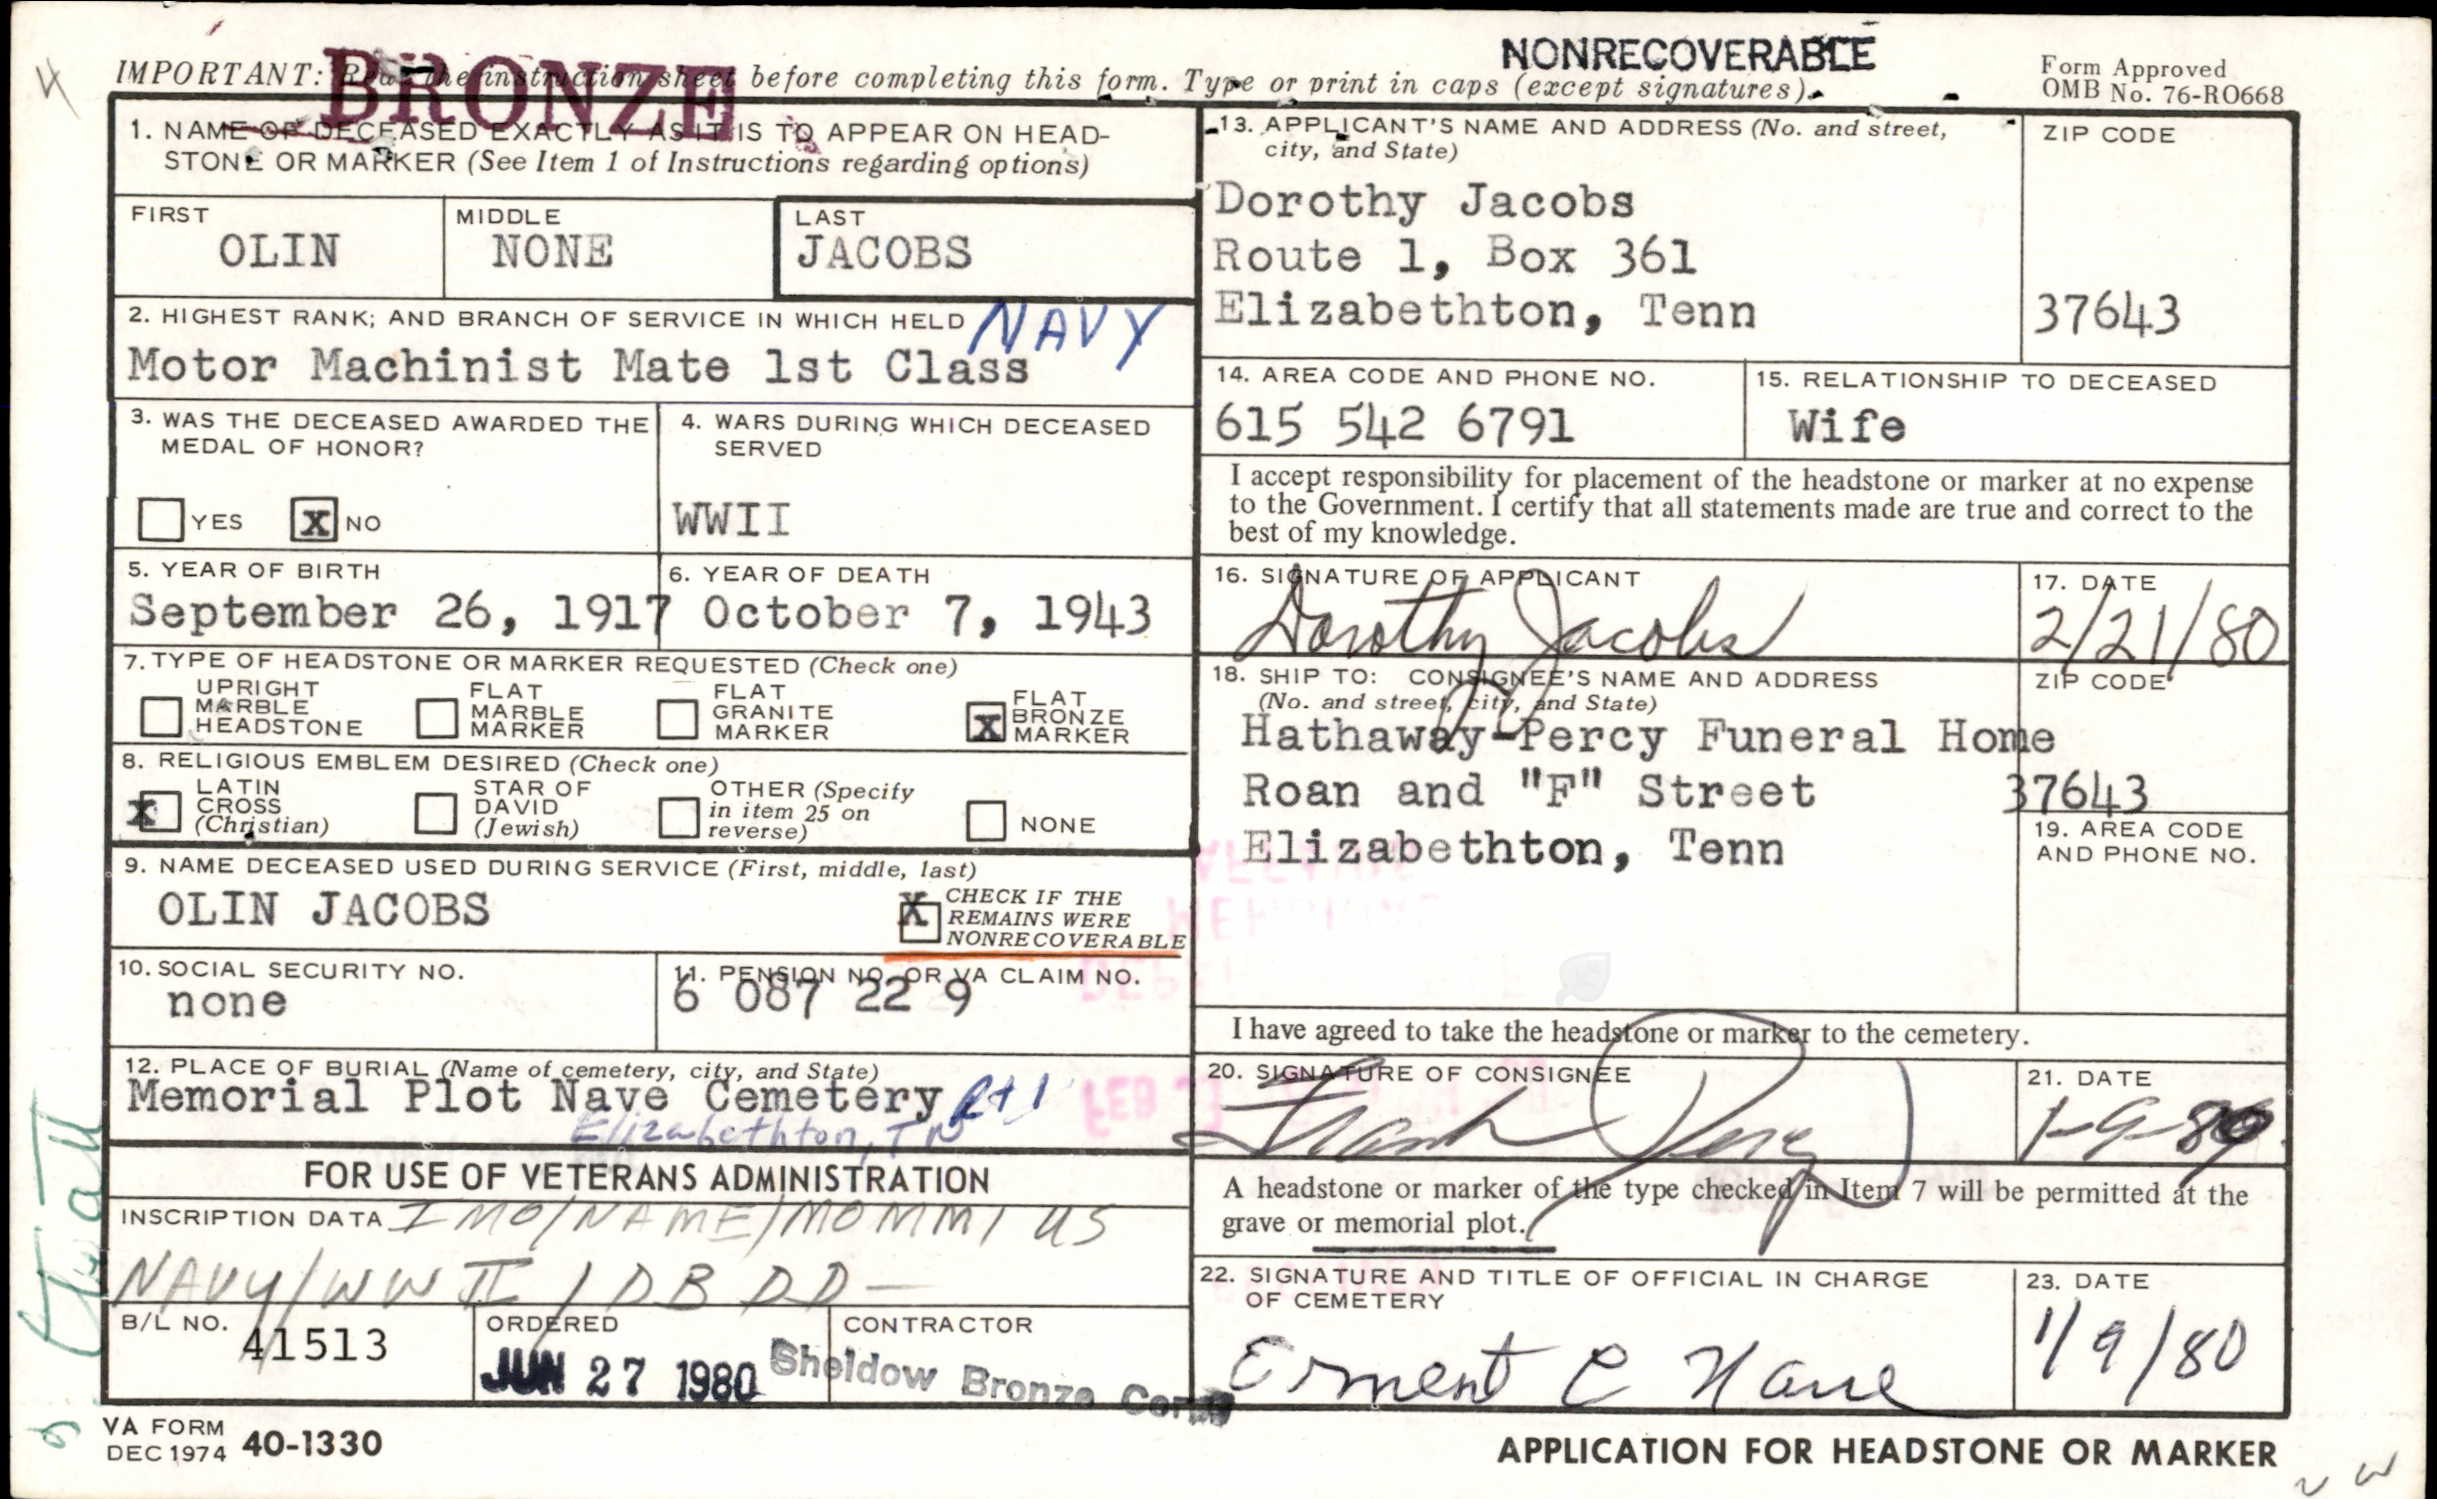 BRONZE
NONRECOVERABLE
IMPORTANT: Read the instruction sheet before completing this form. Type or print in caps (except signatures).
Form Approved
OMB No. 76-RO668
4
1. NAME OF DECEASED EXACTLY AS IT IS TO APPEAR ON HEAD-
STONE OR MARKER (See Item 1 of Instructions regarding options)
FIRST
OLIN
MIDDLE
NONE
LAST
JACOBS
2. HIGHEST RANK; AND BRANCH OF SERVICE IN WHICH HELD
NAVY
Motor Machinist Mate 1st Class
3. WAS THE DECEASED AWARDED THE
MEDAL OF HONOR?
YES X NO
4. WARS DURING WHICH DECEASED
SERVED
WWII
5. YEAR OF BIRTH
September 26, 1917
6. YEAR OF DEATH
October 7, 1943
7. TYPE OF HEADSTONE OR MARKER REQUESTED (Check one)
UPRIGHT
MARBLE
HEADSTONE
FLAT
MARBLE
MARKER
FLAT
GRANITE
MARKER
X FLAT
BRONZE
MARKER
8. RELIGIOUS EMBLEM DESIRED (Check one)
X LATIN
CROSS
(Christian)
STAR OF
DAVID
(Jewish)
OTHER (Specify
in item 25 on
reverse)
NONE
9. NAME DECEASED USED DURING SERVICE (First, middle, last)
OLIN JACOBS
X CHECK IF THE
REMAINS WERE
NONRECOVERABLE
10. SOCIAL SECURITY NO.
none
11. PENSION NO. OR VA CLAIM NO.
6 087 22 9
12. PLACE OF BURIAL (Name of cemetery, city, and State)
Memorial Plot Nave Cemetery Rt 1
Elizabethton, TN
FOR USE OF VETERANS ADMINISTRATION
INSCRIPTION DATA IMO/NAME/MOMM1 US
NAVY/WW II / DB DD —
B/L NO.
41513
ORDERED
JUN 27 1980
CONTRACTOR
Sheldow Bronze Corp
VA FORM
DEC 1974 40-1330
13. APPLICANT'S NAME AND ADDRESS (No. and street,
city, and State)
Dorothy Jacobs
Route 1, Box 361
Elizabethton, Tenn
ZIP CODE
37643
14. AREA CODE AND PHONE NO.
615 542 6791
15. RELATIONSHIP TO DECEASED
Wife
I accept responsibility for placement of the headstone or marker at no expense
to the Government. I certify that all statements made are true and correct to the
best of my knowledge.
16. SIGNATURE OF APPLICANT
Dorothy Jacobs
17. DATE
2/21/80
18. SHIP TO: CONSIGNEE'S NAME AND ADDRESS
(No. and street, city, and State)
Hathaway-Percy Funeral Home
Roan and "F" Street
Elizabethton, Tenn
ZIP CODE
37643
19. AREA CODE
AND PHONE NO.
I have agreed to take the headstone or marker to the cemetery.
20. SIGNATURE OF CONSIGNEE
Frank Percy
21. DATE
1-9-80
A headstone or marker of the type checked in Item 7 will be permitted at the
grave or memorial plot.
22. SIGNATURE AND TITLE OF OFFICIAL IN CHARGE
OF CEMETERY
Ernent C Nave
23. DATE
1/9/80
APPLICATION FOR HEADSTONE OR MARKER